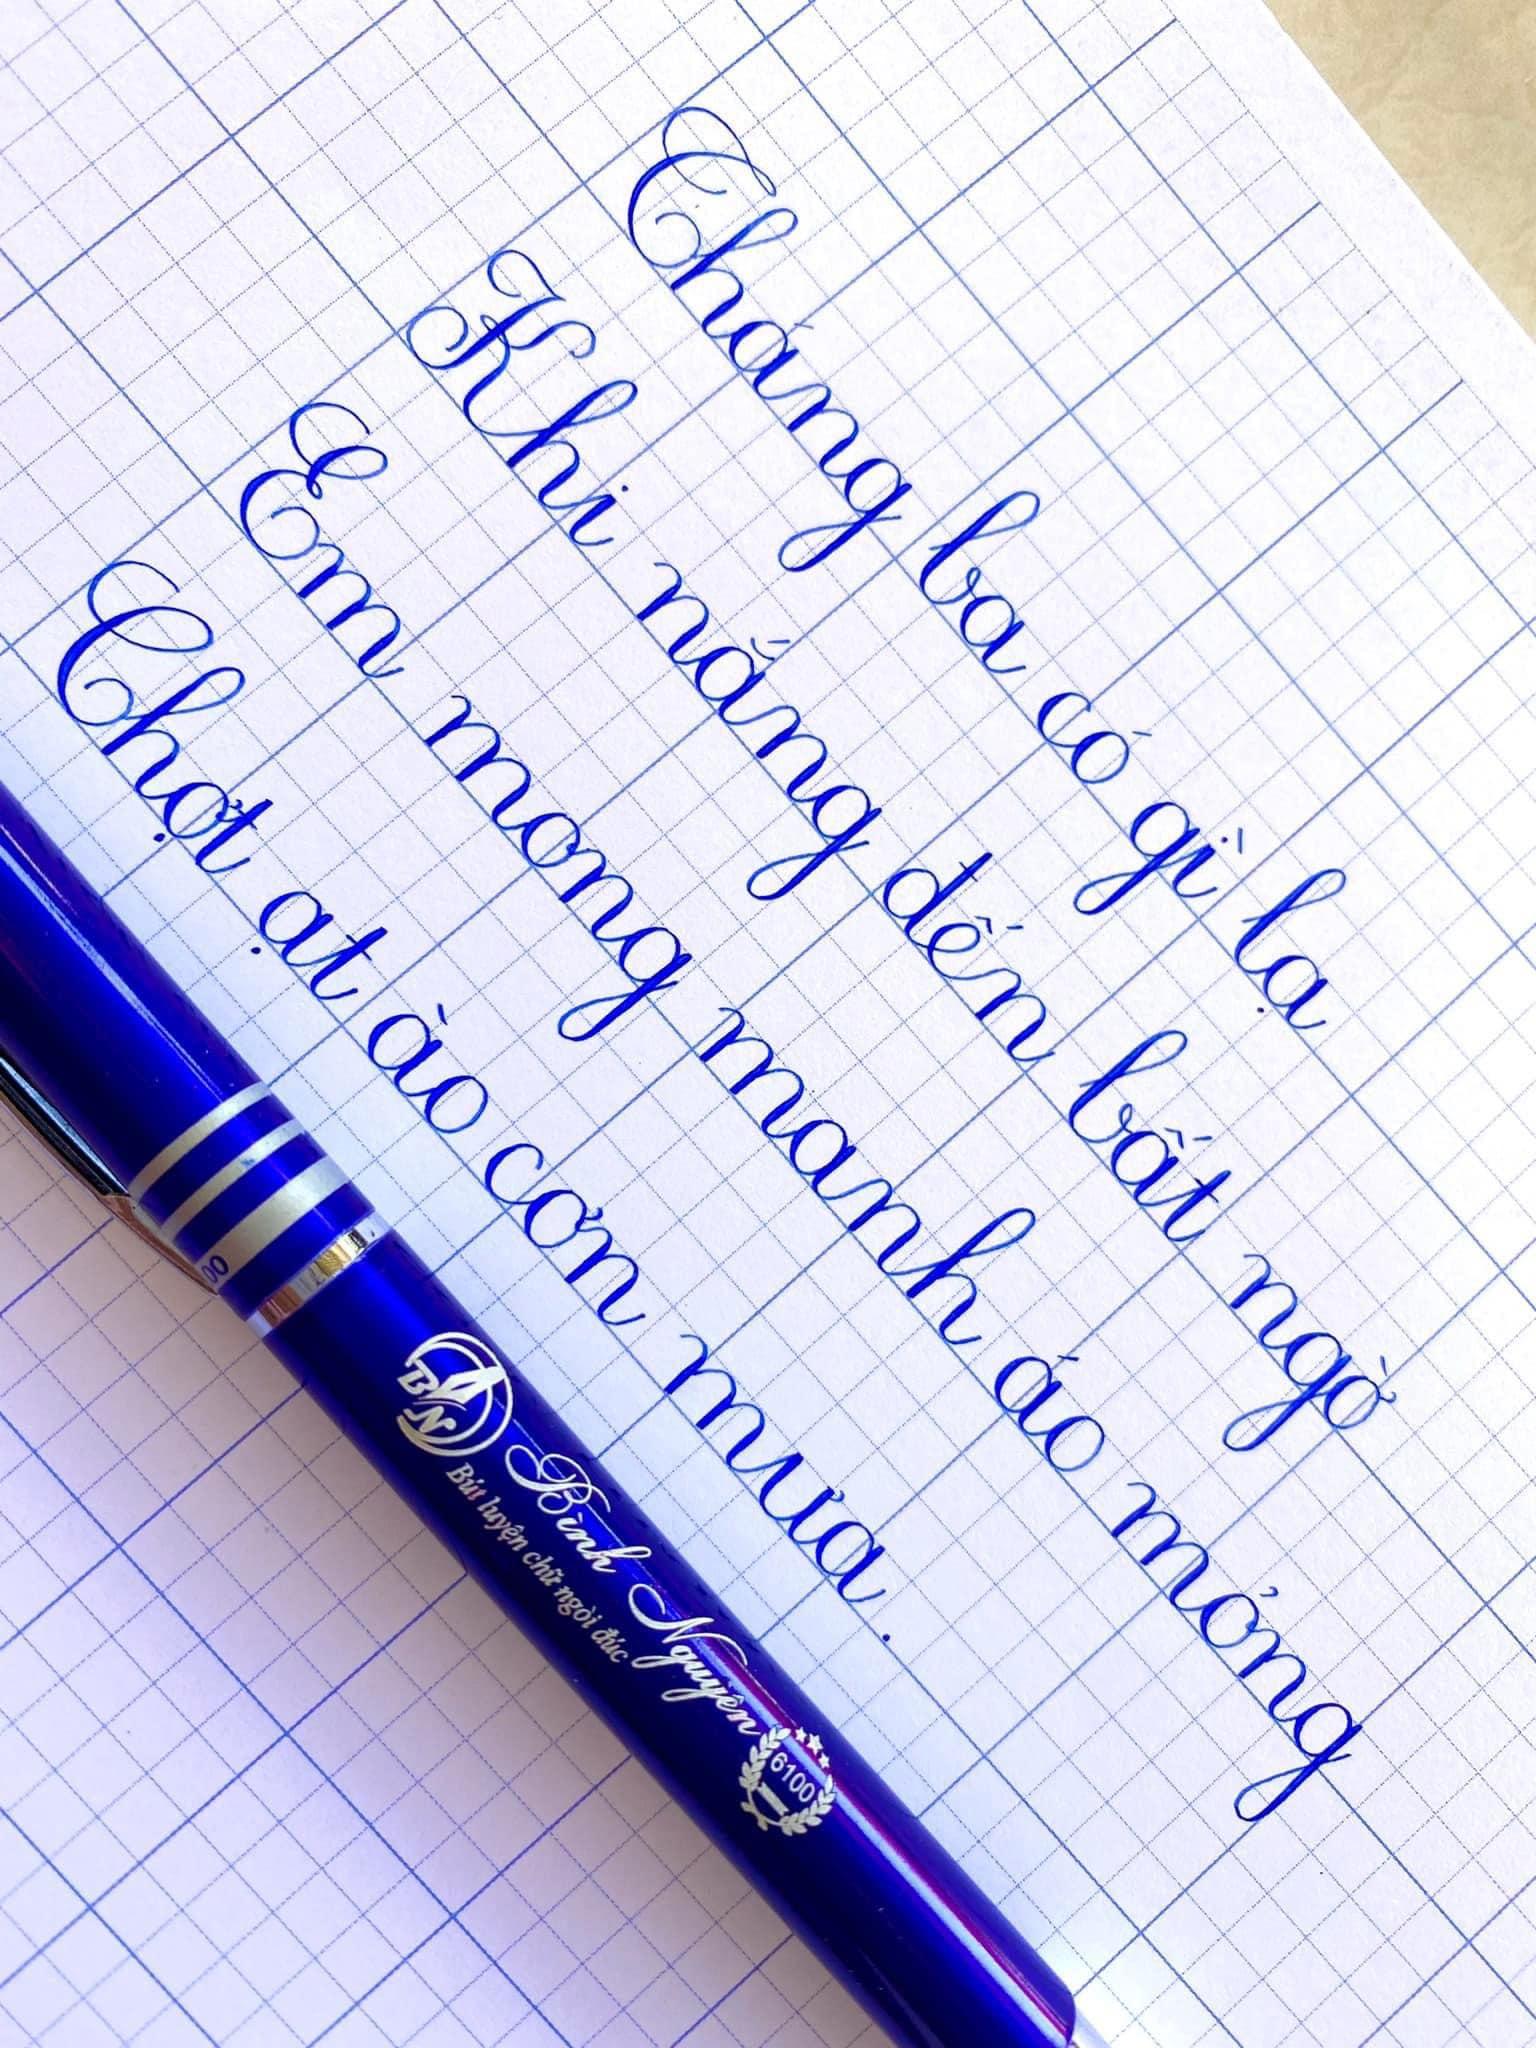 Tháng ba có gì lạ
Khi nắng đến bất ngờ
Em mong manh áo mỏng
Chợt ạt ào cơn mưa.
00
BN
Bình Nguyên
Bút luyện chữ ngòi đúc
6100